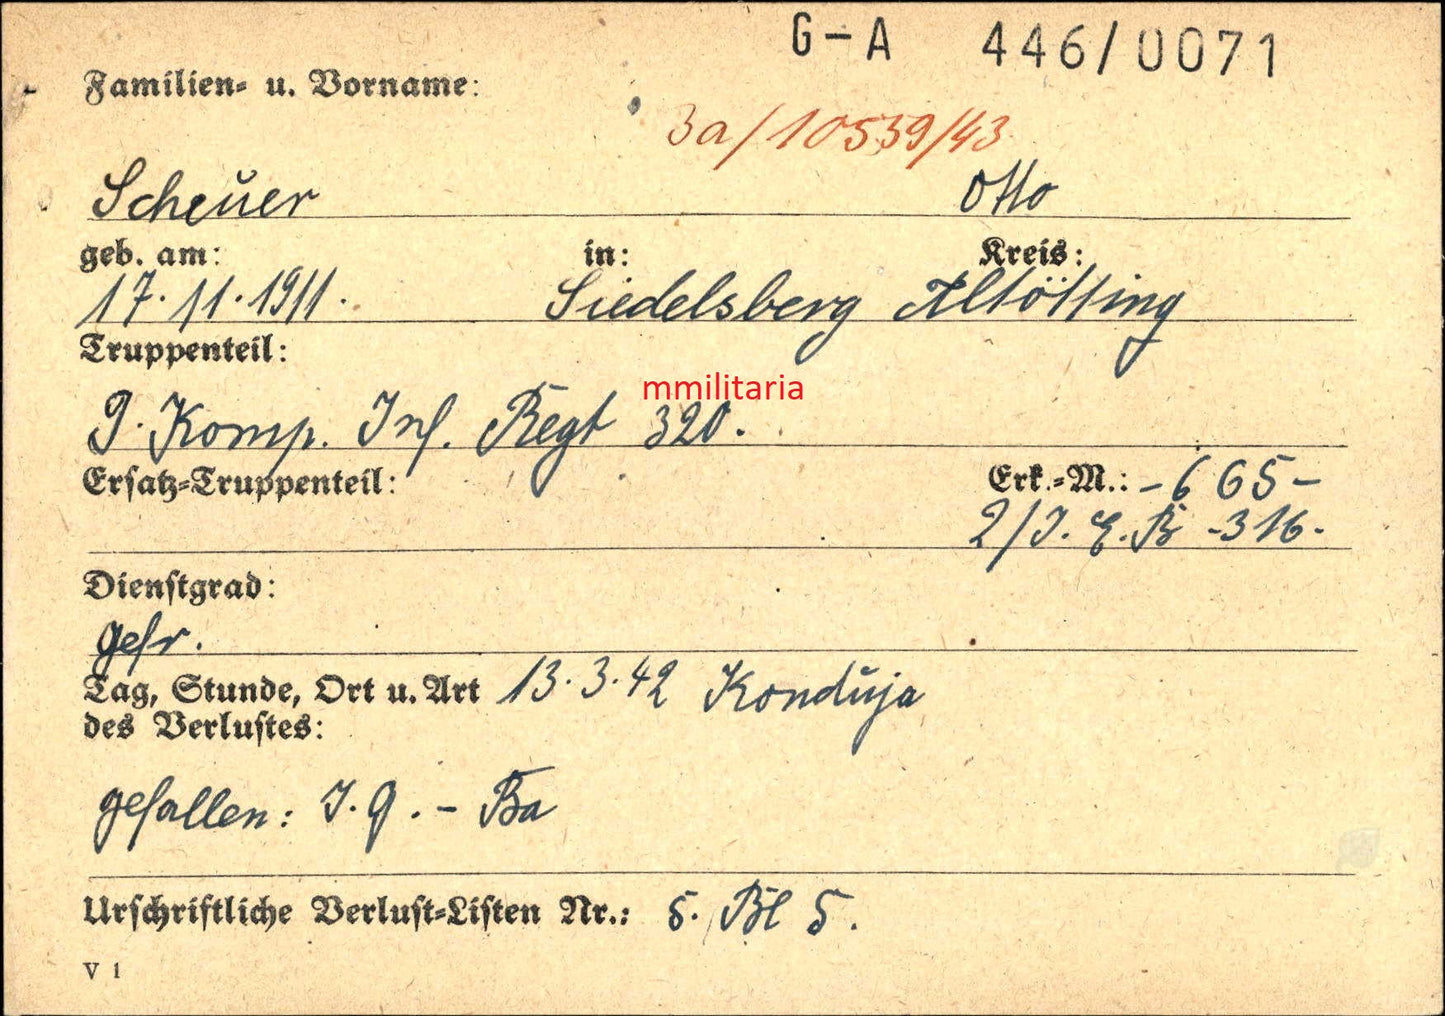 G-A 446/0071
Familien- u. Vorname:
3a/10539/43
Scheuer Otto
geb. am: in: Kreis:
17.11.1911. Siedelsberg Altötting
Truppenteil:
mmilitaria
9. Komp. Inf. Regt 320.
Ersatz-Truppenteil: Erk.-M.: -665-
2/I.E.B -316-
Dienstgrad:
Gefr.
Tag, Stunde, Ort u. Art 13.3.42 Konduja
des Verlustes:
gefallen: I.G. - Ba
Urschriftliche Verlust-Listen Nr.: 5. Bl 5.
V 1